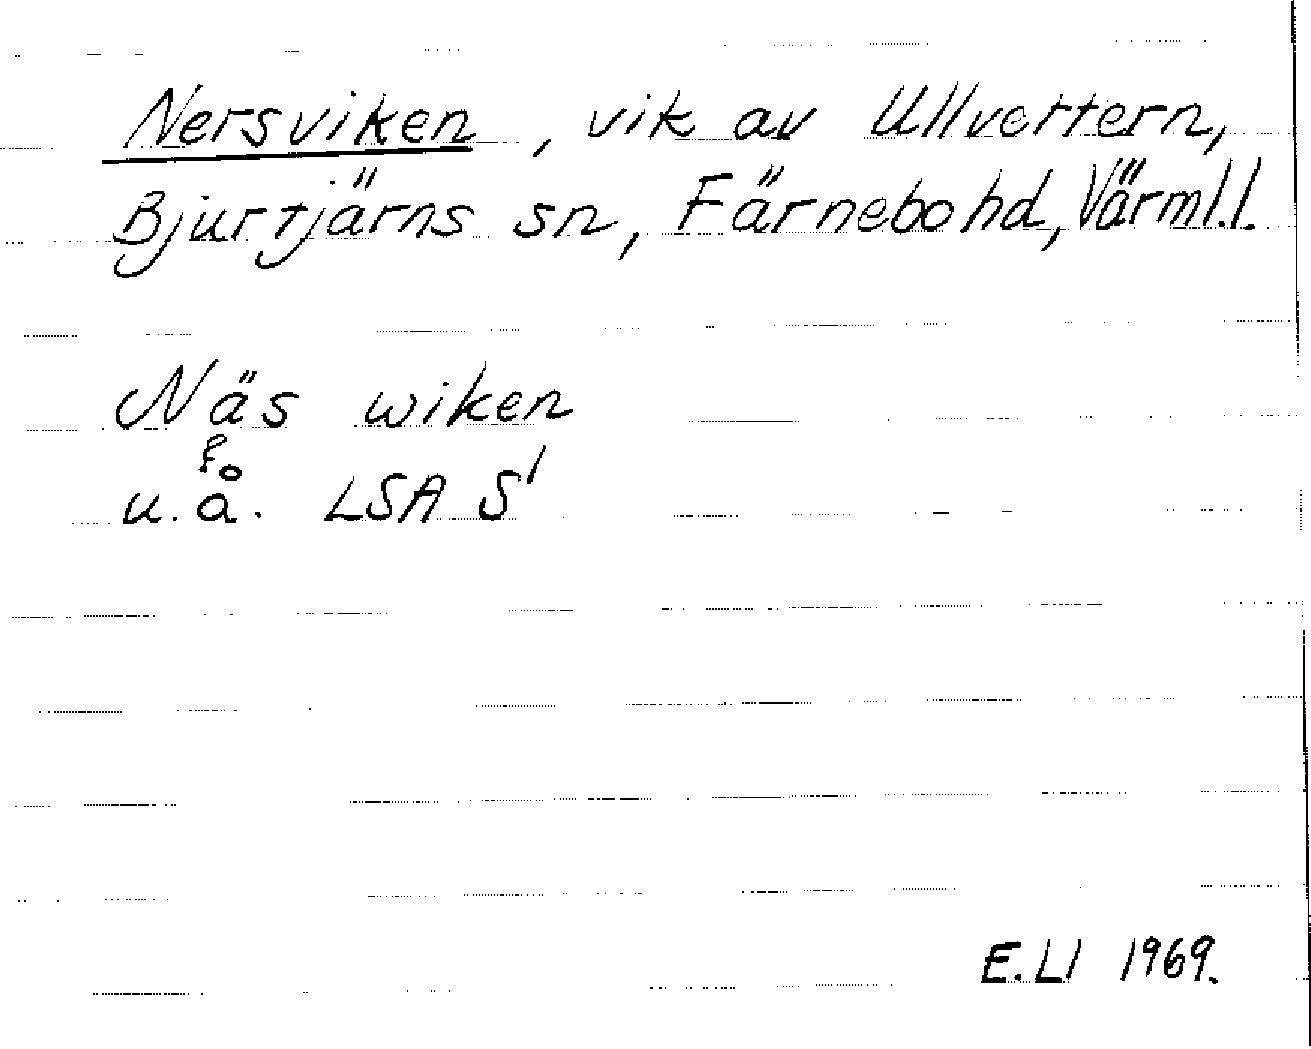 Nersviken, vik av Ullvettern,
Bjurtjärns sn, Färnebo hd, Värml.l.
Näs wiken
u.å. LSA S1
E.Ll 1969.